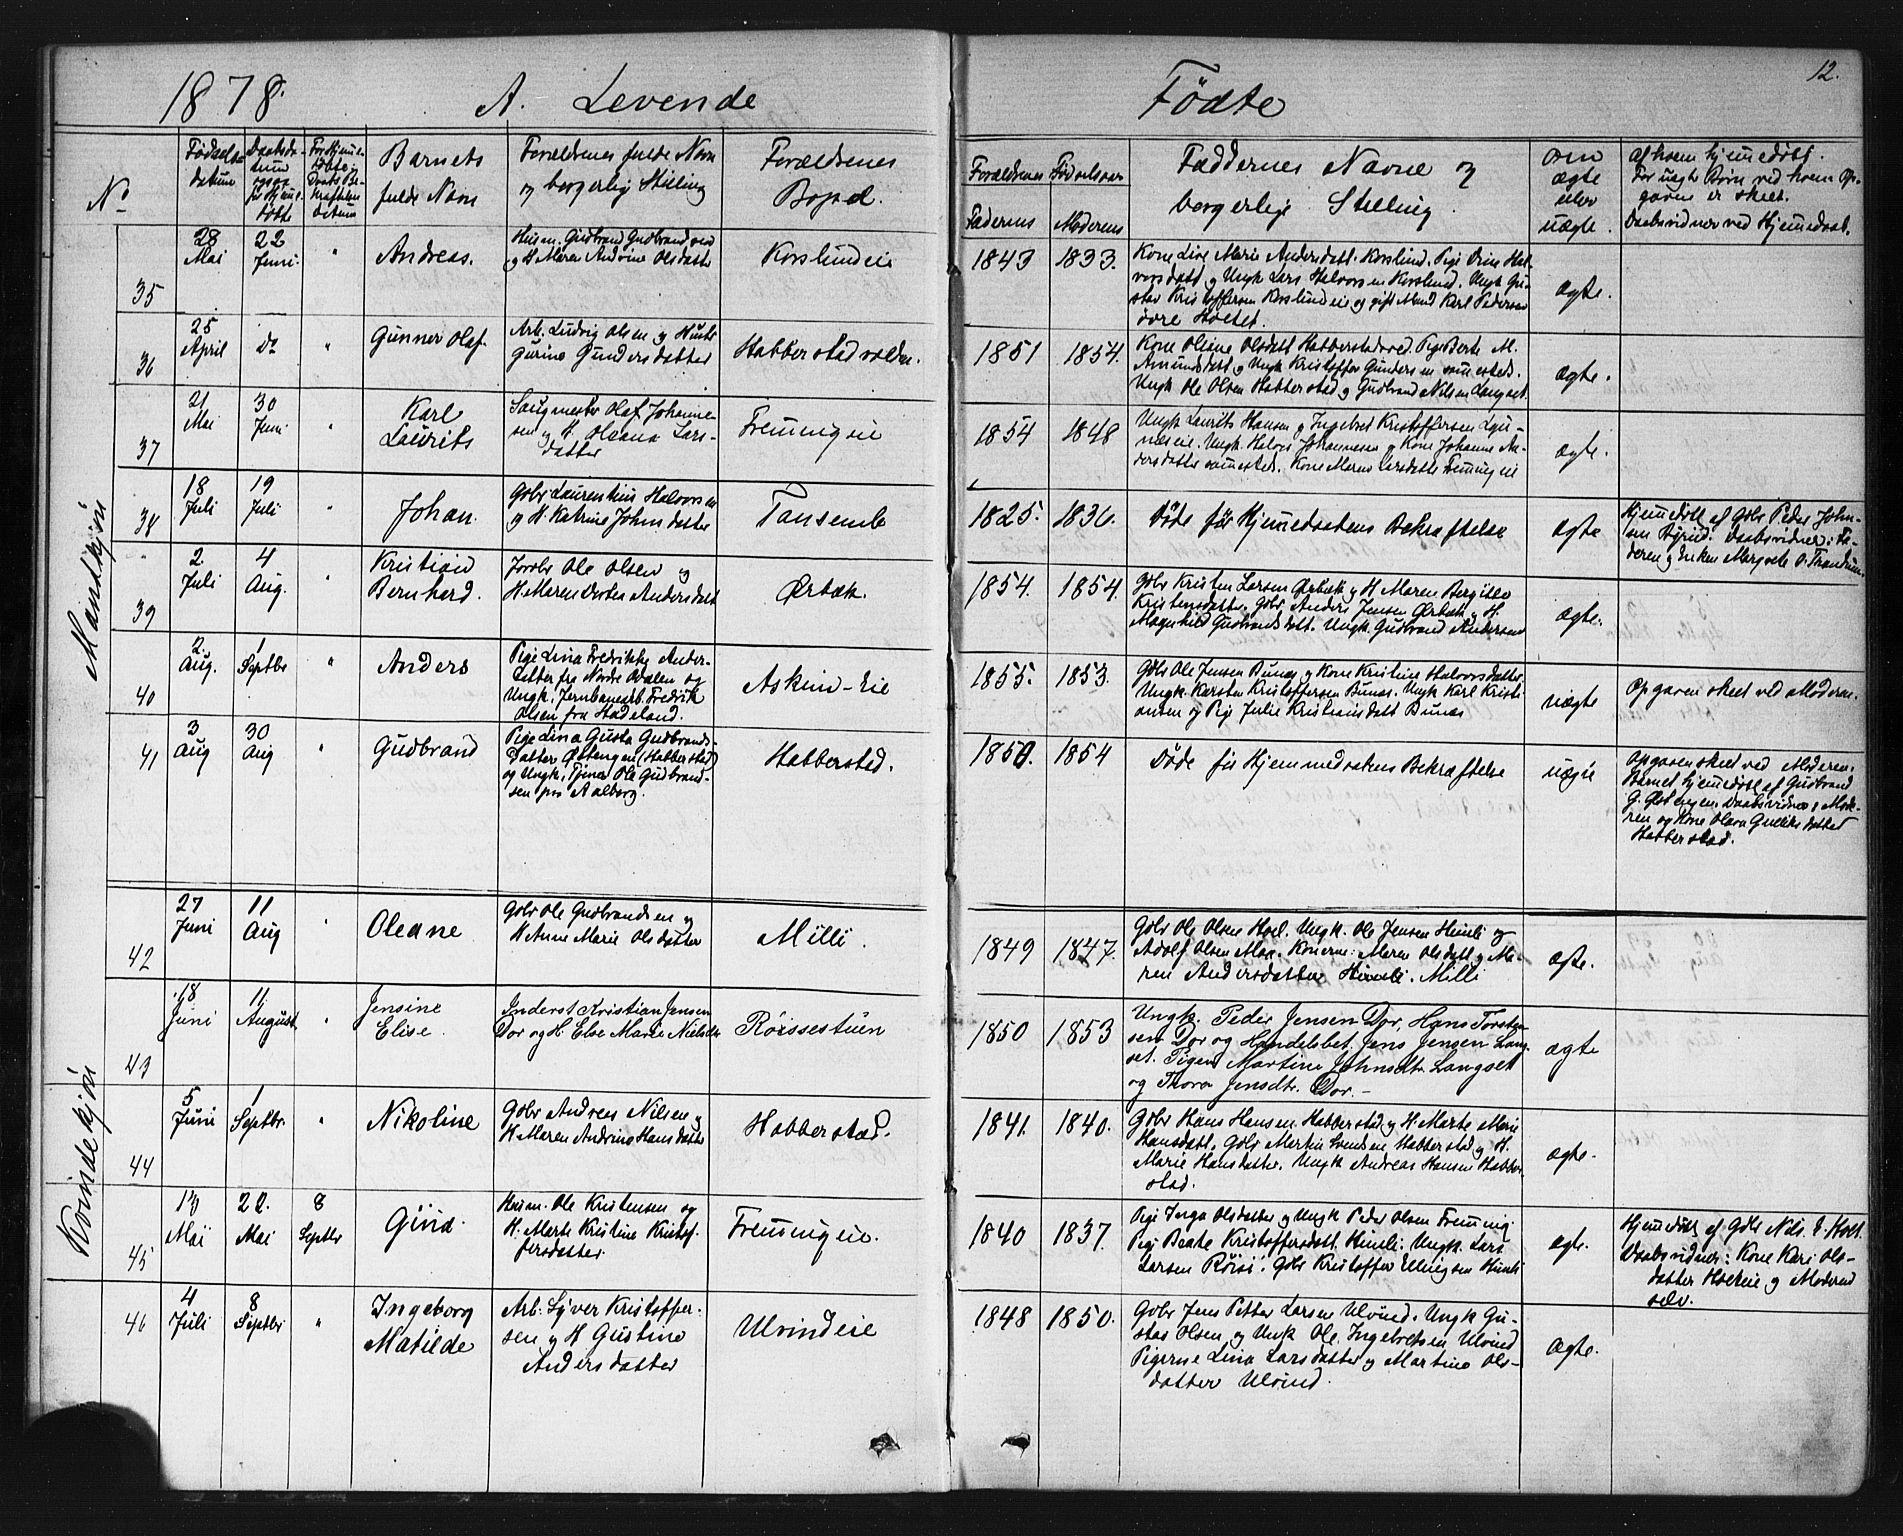 1878.
A. Levende
Født­e
12.
No
Fødsels-
datum
Barnets
fulde Navn
Forældrenes fulde Navn
og borgerlig Stilling
Forældrenes
Bopæl.
Forældrenes Fødselsaar
Faderens Moderens
Faddernes Navne og
borgerlige Stilling.
om
ægte
eller
uægte.
Af hvem hjemmedøbt.
For uægte Børn ved hvem Op-
gaven er skeet.
Daabsvidner ved Hjemmedaab.
Mandkjøn
35
28
Mai
22
Juni.
"
Andreas.
Husm. Gudbrand Gudbrandsen
og H. Maren Andrine Olsdatter
Korslundeie
1843
1833.
Kone Live Marie Andersdatt. Korslund. Pige Oline Hal-
vorsdatt og Ungk. Lars Halvorsen Korslund. Ungk. Gu-
stav Kristoffersen Korslundeie og gift Mand Karl Pedersen
øvre Holtet.
ægte.
36
25
April
Do
"
Gunner Olaf.
Arb. Ludvig Olsen og Hustr
Gurine Gundersdatter
Habberstadvolden.
1851
1854.
Kone Oliane Olsdatt Habberstadvol. Pige Berte M.
Amundsdatt og Ungk. Kristoffer Gundersen samesteds.
Ungk. Ole Olsen Habberstad og Gudbrand Nilsen Langset
ægte.
37
21
Mai
30
Juni
"
Karl
Laurits
Saugmester Olaf Johanne-
sen og H. Oleana Lars-
datter
Fremmingeie
1854
1848
Ungk Laurits Hansen og Ingebret Kristoffersen Lyu-
næseie. Ungk Halvor Johannesen og Kone Johanne An-
dersdatter samesteds. Kone Maren Larsdatter Fremmingeie
ægte.
38
18
Juli
19
Juli
"
Johan.
Gbr Laurentius Halvorsen
og H. Katrine Johnsdatter
Tansemb
1825.
1836.
Døde før Hjemmedaabens Bekræftelse
ægte
Hjemmedøbt af Gbr Peder John-
sen Byrud. Daabsvidner: Fa-
deren og Enken Margrete O. Thrandrum.
39
2
Juli
4
Aug.
"
Kristian
Bernhard.
Jordbr Ole Olsen og
H. Maren Dortea Andersdatt
Ørbæk.
1854.
1854.
Gbr Kristen Larsen Ørbæk og H Maren Bergitte
Kristensdatter. Gbr Anders Jensen Ørbæk og H.
Magnhild Gudbrandsdatt. Ungk. Gudbrand Andersen
ægte.
40
2.
Aug.
1
Septbr
"
Anders
Pige Lina Fredrikke Ander-
datter fra Nordre Odalen og
Ungk. Jernbanearb. Fredrik
Olsen fra Hadeland.
Askim-Eie
1855.
1853.
Gbr Ole Jensen Bunæs og Kone Kristine Halvorsdatter.
Ungk. Karsten Kristoffersen Bunæs. Ungk Karl Kristi-
ansen og Pige Julie Kristiansdatt Bunæs
uægte
Opgaven skeet ved Moderen.
41
3
Aug
30
Aug
"
Gudbrand
Pige Lina Gusta Gudbrands-
datter Østengen (Habberstad)
og Ungk. Tjener Ole Gudbrand-
sen paa Aalborg.
Habberstad.
1850.
1854
Døde før Hjemmedaabens Bekræftelse
uægte
Opgaven skeet ved Moderen.
Barnet hjemmedøbt af Gudbrand
G. Østengen. Daabsvidner: Mode-
ren og Kone Olava Gulliksdatter
Habberstad.
Kvindekjøn
42
27
Juni
11
Aug
"
Oleane
Gbr Ole Gudbrandsen og
H Anne Marie Olsdatter
Milli.
1849
1847.
Gbr Ole Olsen Hoel. Ungk. Ole Jensen Himli og
Adolf Olsen Moa. Konerne: Maren Olsdatt og Ma-
ren Andersdatter Himli. Milli
ægte.
43
18
Juni
11
August
"
Jensine
Elise.
Inderst Kristian Jensen
Dor og H. Else Marie Nielsdtr
Røissestuen
1850
1853
Ungk. Peder Jensen Dor, Hans Torsten-
sen Dor og Handelsbet. Jens Jensen Lang-
set. Pigen Martine Johnsdtr. Langset
og Thora Jensdtr. Dor.-
ægte
44
5
Juni
1
Septbr.
"
Nikoline
Gbr Andreas Nilsen og
H Maren Andrine Hansdatter
Habberstad.
1841.
1840.
Gbr Hans Hansen Habberstad og H. Marte Marie
Hansdatt. Gbr Martin Svendsen Habberstad og H.
Marie Hansdatter. Ungk Andreas Hansen Habber-
stad.
ægte.
45
13
Mai
22.
Mai
8
Septbr
Gina.
Husm. Ole Kristensen og
H. Marte Kristine Kristof-
fersdatter
Fremmingeie.
1840
1837.
Pige Inga Olsdatter og Ungk Peder Olsen Fremming.
Pige Beate Kristoffersdatt. Himli. Ungk. Lars
Larsen Røisi. Gbr Kristoffer Ellingsen Himli
ægte.
Hjemmedøbt af Gbr Nils E. Holt.
Daabsvidner: Kone Kari Ols-
datter Holteie og Moderen
selv.
46
4
Juli
8
Septbr
"
Ingeborg
Matilde
Arb. Syver Kristoffer-
sen og H Gustine
Andersdatter
Ulvindeie
1848
1850.
Gbr Jens Petter Larsen Ulvind. Ungk Gu-
stav Olsen og Ungk Ole Ingebretsen Ulvind
Pigerne Lina Larsdatter og Martine Ols-
datter Ulvind.
ægte.